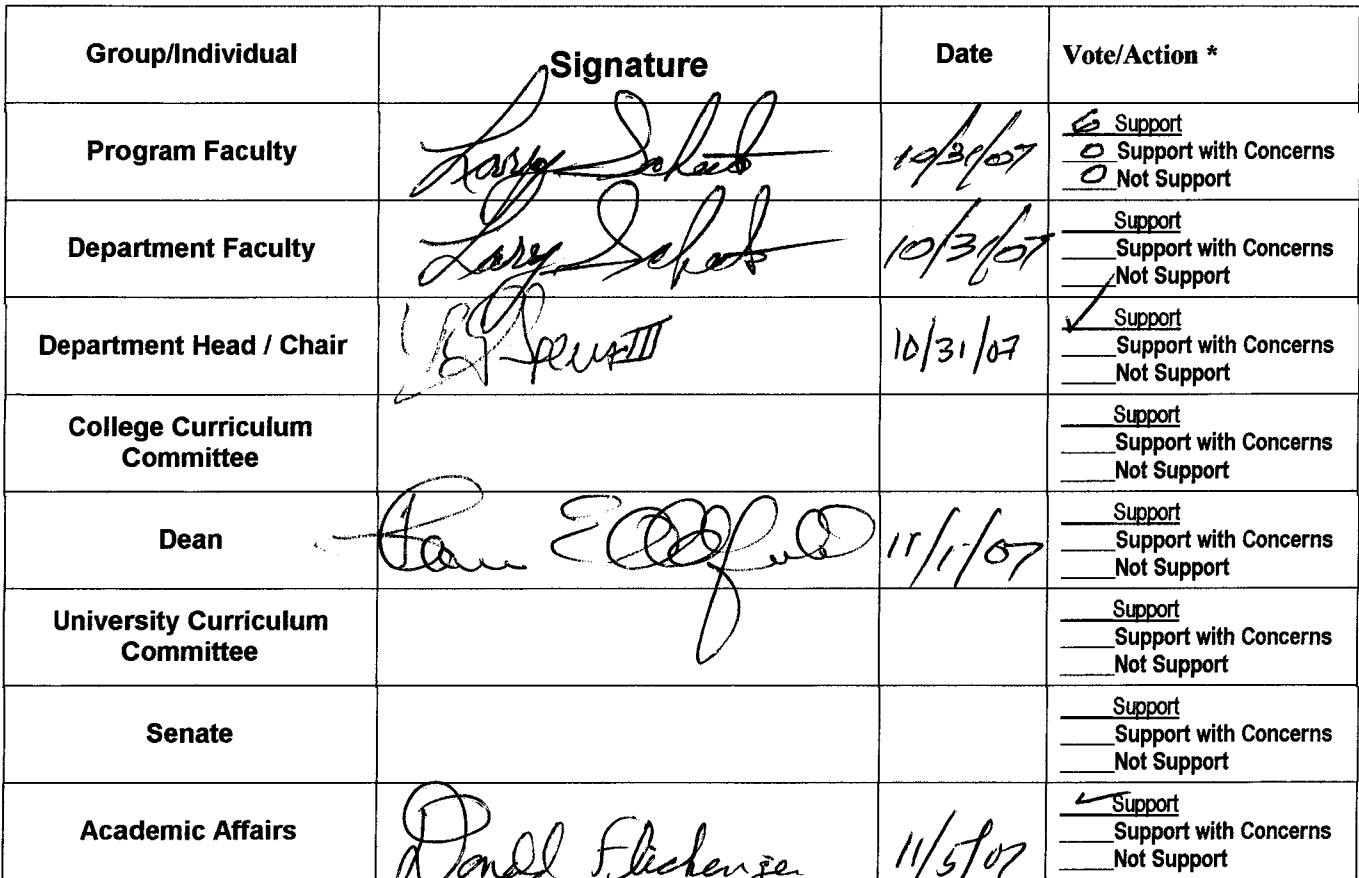 Group/Individual Signature Date Vote/Action *
Program Faculty Larry 10/31/07 6 Support
0 Support with Concerns
0 Not Support
Department Faculty Larry 10/31/07 ____Support
____Support with Concerns
____Not Support
Department Head / Chair III 10/31/07 ✓ Support
____Support with Concerns
____Not Support
College Curriculum Committee ____Support
____Support with Concerns
____Not Support
Dean 11/1/07 ____Support
____Support with Concerns
____Not Support
University Curriculum Committee ____Support
____Support with Concerns
____Not Support
Senate ____Support
____Support with Concerns
____Not Support
Academic Affairs Donald Flickenger 11/5/07 ✓ Support
____Support with Concerns
____Not Support